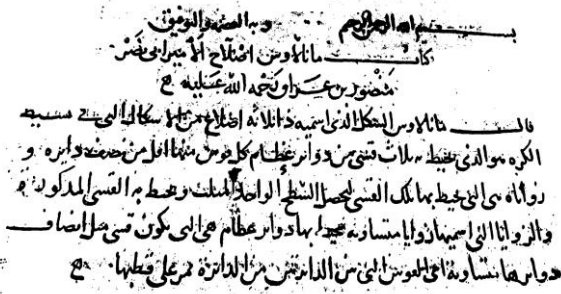 بسم الله الرحمن الرحيم وبه العصمة والتوفيق
كتاب مانالاوس اصلاح الامير ابى نصر
منصور بن عراق رحمه الله عليه
قال مانالاوس الشكل الذى اسميه ذا ثلاثه اضلاع من الاشكال التى فى بسيط
الكره هو الذى يحيط به ثلاث قسى من دوائر عظام كل قوس منها اقل من نصف دايره و
زواياه هى التى يحيط بها تلك القسى المثلث ويحيط به القسى المذكورة
والزوايا التى اسميها زوايا متساويه يحيط بها دوائر عظام هى التى تكون قسى من انصاف
دوايرها متساوية اعنى القوس التى من الدائرتين من الدائرة تمر على قطبها